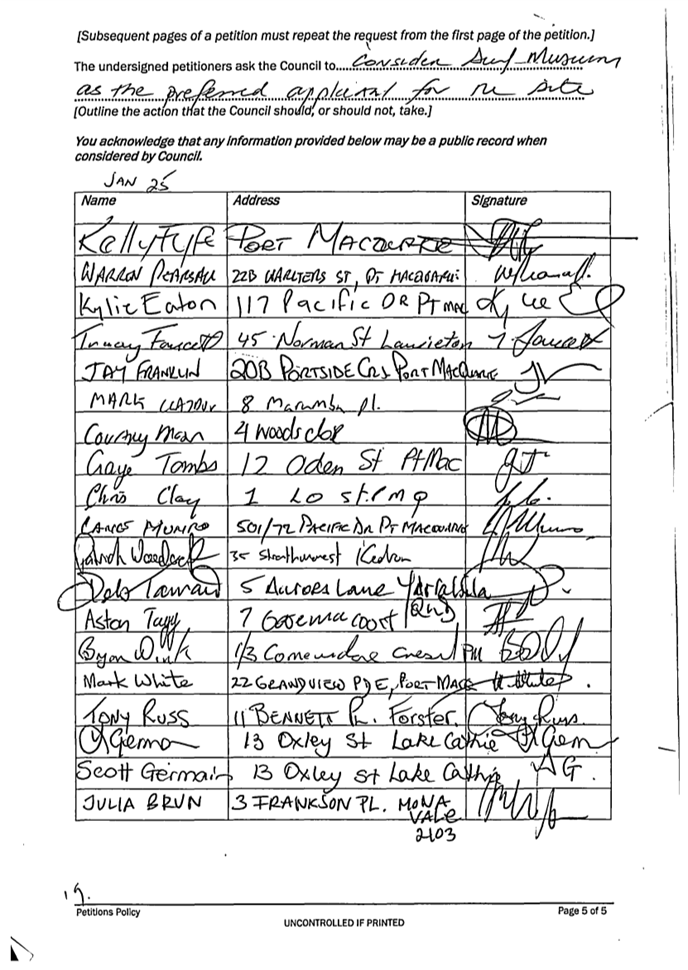 [Subsequent pages of a petition must repeat the request from the first page of the petition.]
The undersigned petitioners ask the Council to.....Consider Surf Museum
as the preferred for the site
[Outline the action that the Council should, or should not, take.]
You acknowledge that any information provided below may be a public record when
considered by Council.
JAN 25
Name Address Signature
Kelly Fyfe PORT MACQUARIE
WARREN PEARSALL 22B WARLTERS ST, PT MACQUARIE
Kylie Eaton 117 Pacific DR PT MAC
Tracey Fawcett 45 Norman St Laurieton T Fawcett
JAY FRANKLIN 20B PORTSIDE CRS PORT MACQUARIE
MARK 8 Marumba pl.
Courtney 4 woods close
Gaye Tombs 12 Oden St Pt Mac GT
Chris Clay 1 st. P M Q
MUNRO 501/72 PACIFIC DR PT MACQUARIE
35 Kedron
Deb 5 Lane Yarrabilba
QLD
Aston Tagg 7 court
1/3 Commodore Cresent PM
Mark White 22 GRANDVIEW PDE, PORT MACQ M White.
TONY RUSS 11 BENNETT PL. Forster. Tony Russ
13 Oxley St Lake Cathie
Scott Germain 13 Oxley st Lake Cathie G.
JULIA BRUN 3 FRANKSON PL. MONA
VALE
2103
19.
Petitions Policy Page 5 of 5
UNCONTROLLED IF PRINTED